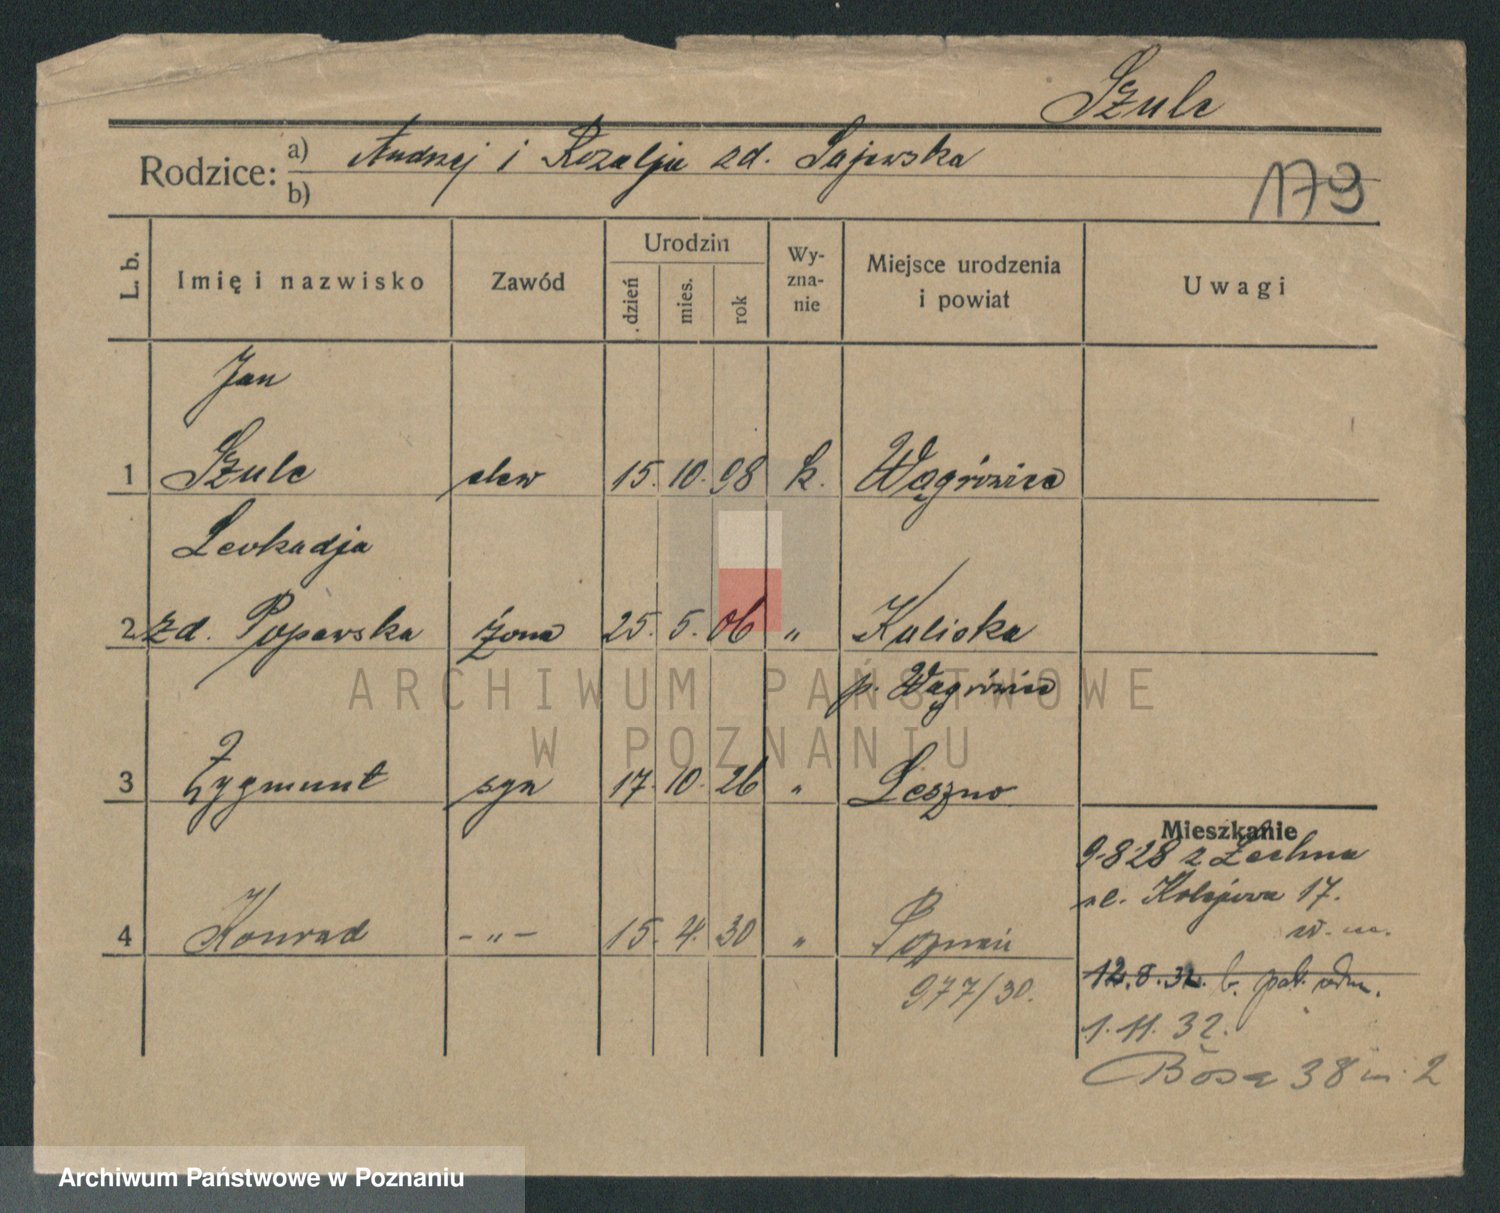 Szulc
Rodzice: a) Andrzej i Rozalja zd. Sajewska
b)
179
L. b.
Imię i nazwisko
Zawód
Urodzin
dzień
mies.
rok
Wy-
zna-
nie
Miejsce urodzenia
i powiat
Uwagi
Jan
1 Szulc 15. 10. 98 k. Wągrówiec
Leokadja
2 zd. Popewska żona 25. 5. 06 " Kuliska
p. Wągrówiec
3 Zygmunt syn 17. 10. 26 " Leszno
Mieszkanie
9.8 28 z
ul. Kolejowa 17.
w. m.
4 Konrad - " - 15. 4. 30 " Poznań
977/30.
12. 8. 32. b.
1. 11. 32.
38 m. 2
ARCHIWUM PAŃSTWOWE
W POZNANIU
Archiwum Państwowe w Poznaniu